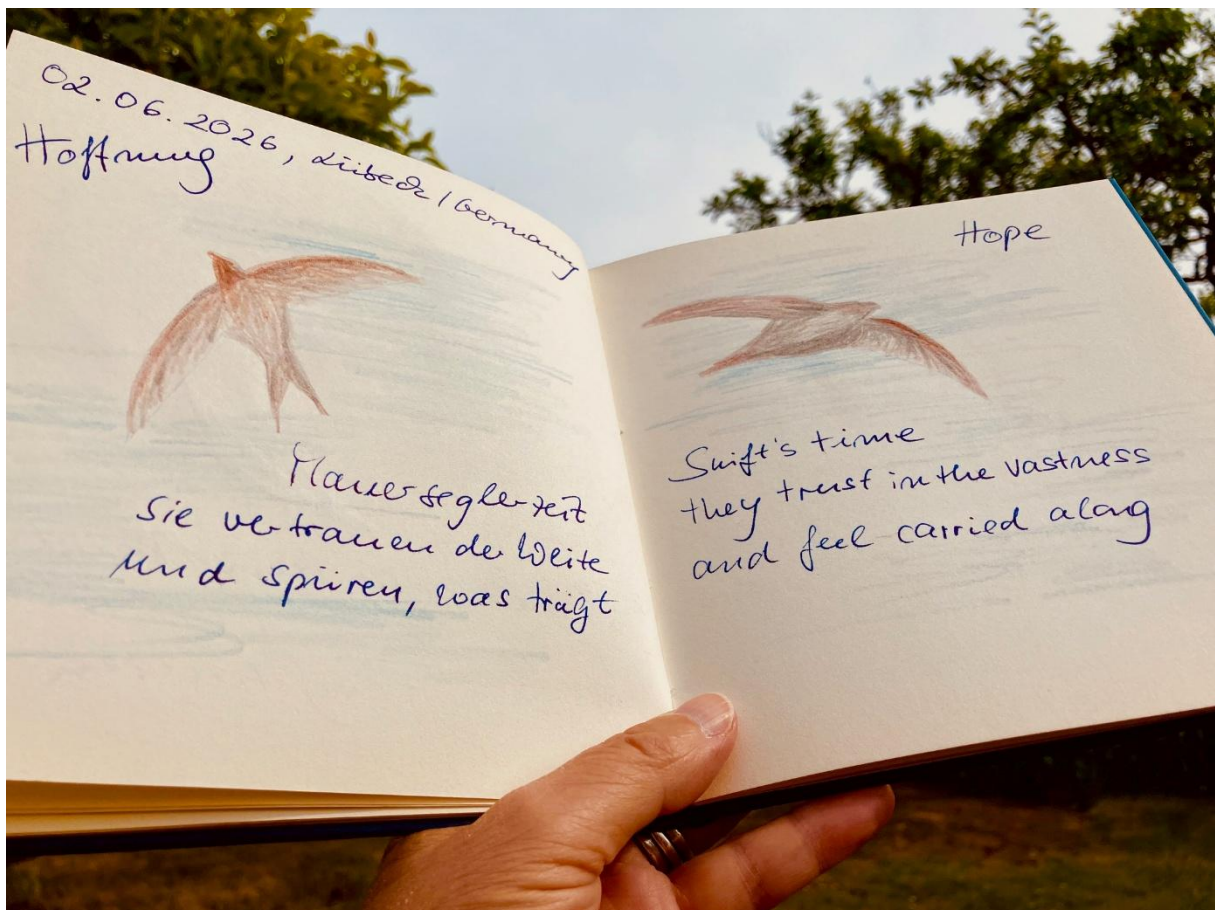 02.06.2026, Lübeck/Germany
Hoffnung
Mauerseglerzeit
Sie vertrauen der Weite
und spüren, was trägt
Hope
Swift's time
they trust in the vastness
and feel carried along